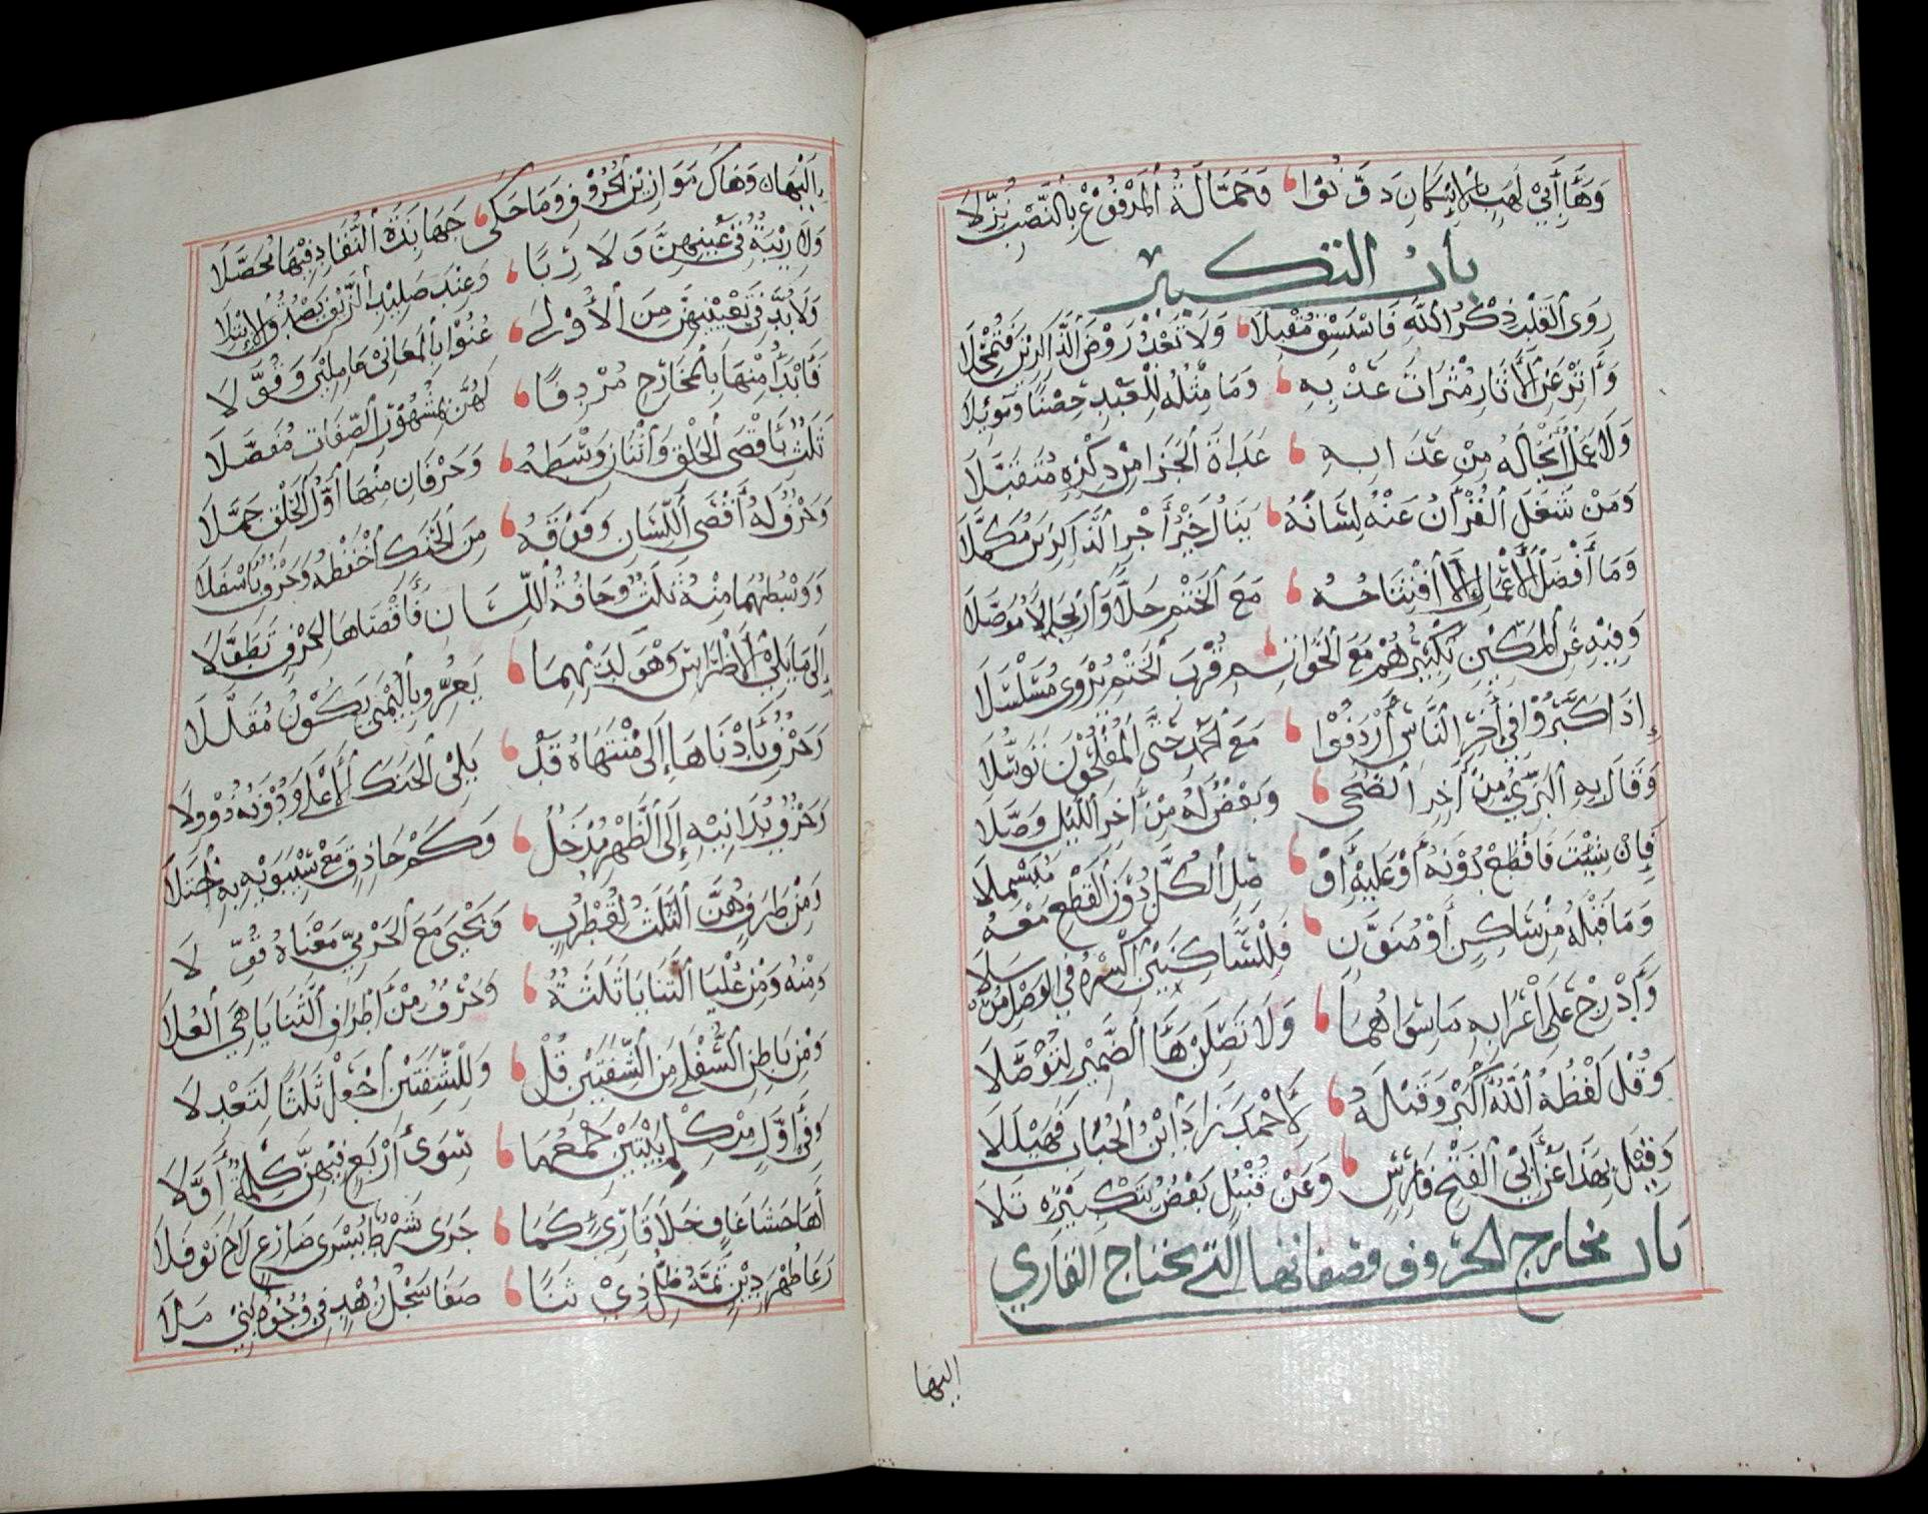 وَهَا أَبِي لَهْبٍ بِالْإِسْكَانِ دَوَّنُوا وَحَمَّالَةُ الْمَرْفُوعُ بِالنَّصْبِ نُزِّلَا
بَابُ التَّكْبِيرِ
رَوَى الْقَلْبِ ذِكْرُ اللَّهِ فَاسْتَسْقِ مُقْبِلَا وَلَا تَعْدُ رَوْضَ الذَّاكِرِينَ فَتُمْحِلَا
وَآثِرْ عَنِ الْآثَارِ مَثْرَاةَ عَذْبِهِ وَمَا مِثْلُهُ لِلْعَبْدِ حِصْنًا وَمَوْئِلَا
وَلَا عَمَلٌ أَنْجَى لَهُ مِنْ عَذَابِهِ غَدَاةَ الْجَزَا مِنْ ذِكْرِهِ مُتَقَبَّلَا
وَمَنْ شَغَلَ الْقُرْآنُ عَنْهُ لِسَانَهُ يَنَالُ خَيْرَ أَجْرِ الذَّاكِرِينَ مُكَمَّلَا
وَمَا أَفْضَلُ الْأَعْمَالِ إِلَّا افْتِتَاحُهُ مَعَ الْخَتْمِ حِلًّا وَارْتِحَالًا مُوَصَّلَا
وَفِيهِ عَنِ الْمَكِّينَ تَكْبِيرُهُمْ مَعَ الْخَوَاتِمِ قُرْبَ الْخَتْمِ يُرْوَى مُسَلْسَلَا
إِذَا كَبَّرُوا فِي آخِرِ النَّاسِ أَرْدَفُوا مَعَ الْحَمْدِ حَتَّى الْمُفْلِحُونَ تَوَسُّلَا
وَقَالَ بِهِ الْبَزِّيُّ مِنْ آخِرِ الضُّحَى وَبَعْضٌ لَهُ مِنْ آخِرِ اللَّيْلِ وَصَّلَا
فَإِنْ شِئْتَ فَاقْطَعْ دُونَهُ أَوْ عَلَيْهِ أَوْ صِلِ الْكُلَّ دُونَ الْقَطْعِ مَعْهُ مُبَسْمِلَا
وَمَا قَبْلَهُ مِنْ سَاكِنٍ أَوْ مُنَوَّنٍ فَلِلسَّاكِنَيْنِ اكْسِرْهُ فِي الْوَصْلِ مُرْسَلَا
وَأَدْرِجْ عَلَى إِعْرَابِهِ مَا سِوَاهُمَا وَلَا تَصِلَنْ هَاءَ الضَّمِيرِ لِتُوصَلَا
وَقُلْ لَفْظُهُ اللَّهُ أَكْبَرُ وَقَبْلَهُ لِأَحْمَدَ زَادَ ابْنُ الْحُبَابِ فَهَيْلَلَا
وَقِيلَ بِهَذَا عَنْ أَبِي الْفَتْحِ فَارِسٍ وَعَنْ قُنْبُلٍ بَعْضٌ بِتَكْبِيرِهِ تَلَا
بَابُ مَخَارِجِ الْحُرُوفِ وَصِفَاتِهَا الَّتِي يَحْتَاجُ الْقَارِي
إليها
إِلَيْهَا وَهَاكَ مَوَازِينَ الْحُرُوفِ وَمَا حَكَى جَهَابِذَةُ النُّقَّادِ فِيهَا مُحَصَّلَا
وَلَا رِيبَةٌ فِي عَيْنِهِنَّ وَلَا رِبَا وَعِنْدَ صَلِيلِ الزَّيْفِ يَصْدُقُ الِابْتِلَا
وَلَا بُدَّ فِي تَعْيِينِهِنَّ مِنَ الْأُولَى عُنُوا بِالْمَعَانِي عَامِلِينَ وَقُوَّلَا
فَابْدَأْ مِنْهَا بِالْمَخَارِجِ مُرْدِفًا لَهُنَّ بِمَشْهُورِ الصِّفَاتِ مُفَصَّلَا
ثَلَاثٌ بِأَقْصَى الْحَلْقِ وَاثْنَانِ وَسْطَهُ وَحَرْفَانِ مِنْهَا أَوَّلَ الْحَلْقِ جُمِّلَا
وَحَرْفٌ لَهُ أَقْصَى اللِّسَانِ وَفَوْقَهُ مِنَ الْحَنَكِ احْفَظْهُ وَحَرْفٌ بِأَسْفَلَا
وَوَسْطُهُمَا مِنْهُ ثَلَاثٌ وَحَافَةُ اللِّسَانِ فَأَقْصَاهَا لِحَرْفٍ تَطَوَّلَا
إِلَى مَا يَلِي الْأَضْرَاسَ وَهْوَ لَدَيْهِمَا يَعِزُّ وَبِالْيُمْنَى يَكُونُ مُقَلَّلَا
وَحَرْفٌ بِأَدْنَاهَا إِلَى مُنْتَهَاهُ قَدْ يَلِي الْحَنَكَ الْأَعْلَى وَدُونَهُ ذُو وِلَا
وَحَرْفٌ يُدَانِيهِ إِلَى الظَّهْرِ مَدْخَلٌ وَكَمْ حَاذِقٍ مَعْ سِيبَوَيْهِ بِهِ اجْتَلَا
وَمِنْ طَرَفٍ هُنَّ الثَّلَاثُ لِقُطْرُبٍ وَيَحْيَى مَعَ الْجَرْمِيِّ مَعْنَاهُ قُوِّلَا
وَمِنْهُ وَمِنْ عُلْيَا الثَّنَايَا ثَلَاثَةٌ وَحَرْفٌ مِنْ أَطْرَافِ الثَّنَايَا هِيَ الْعُلَا
وَمِنْ بَاطِنِ السُّفْلَى مِنَ الشَّفَتَيْنِ قُلْ وَلِلشَّفَتَيْنِ اجْعَلْ ثَلَاثًا لِتَعْدِلَا
وَفِي أَوَّلٍ مِنْ كِلْمِ بَيْتَيْنِ جَمْعُهَا سِوَى أَرْبَعٍ فِيهِنَّ كِلْمَةٌ أَوَّلَا
أَهَاعَ حَشَا غَاوٍ خَلَا قَارِئٌ كَمَا جَرَى شَرْطُ يُسْرَى ضَارِعٍ لَاحَ نَوْفَلَا
رَعَى طُهْرَ دِينٍ تَمَّهُ ظِلُّ ذِي ثَنَا صَفَا سَجْلُ زُهْدٍ فِي وُجُوهِ بَنِي مَلَا